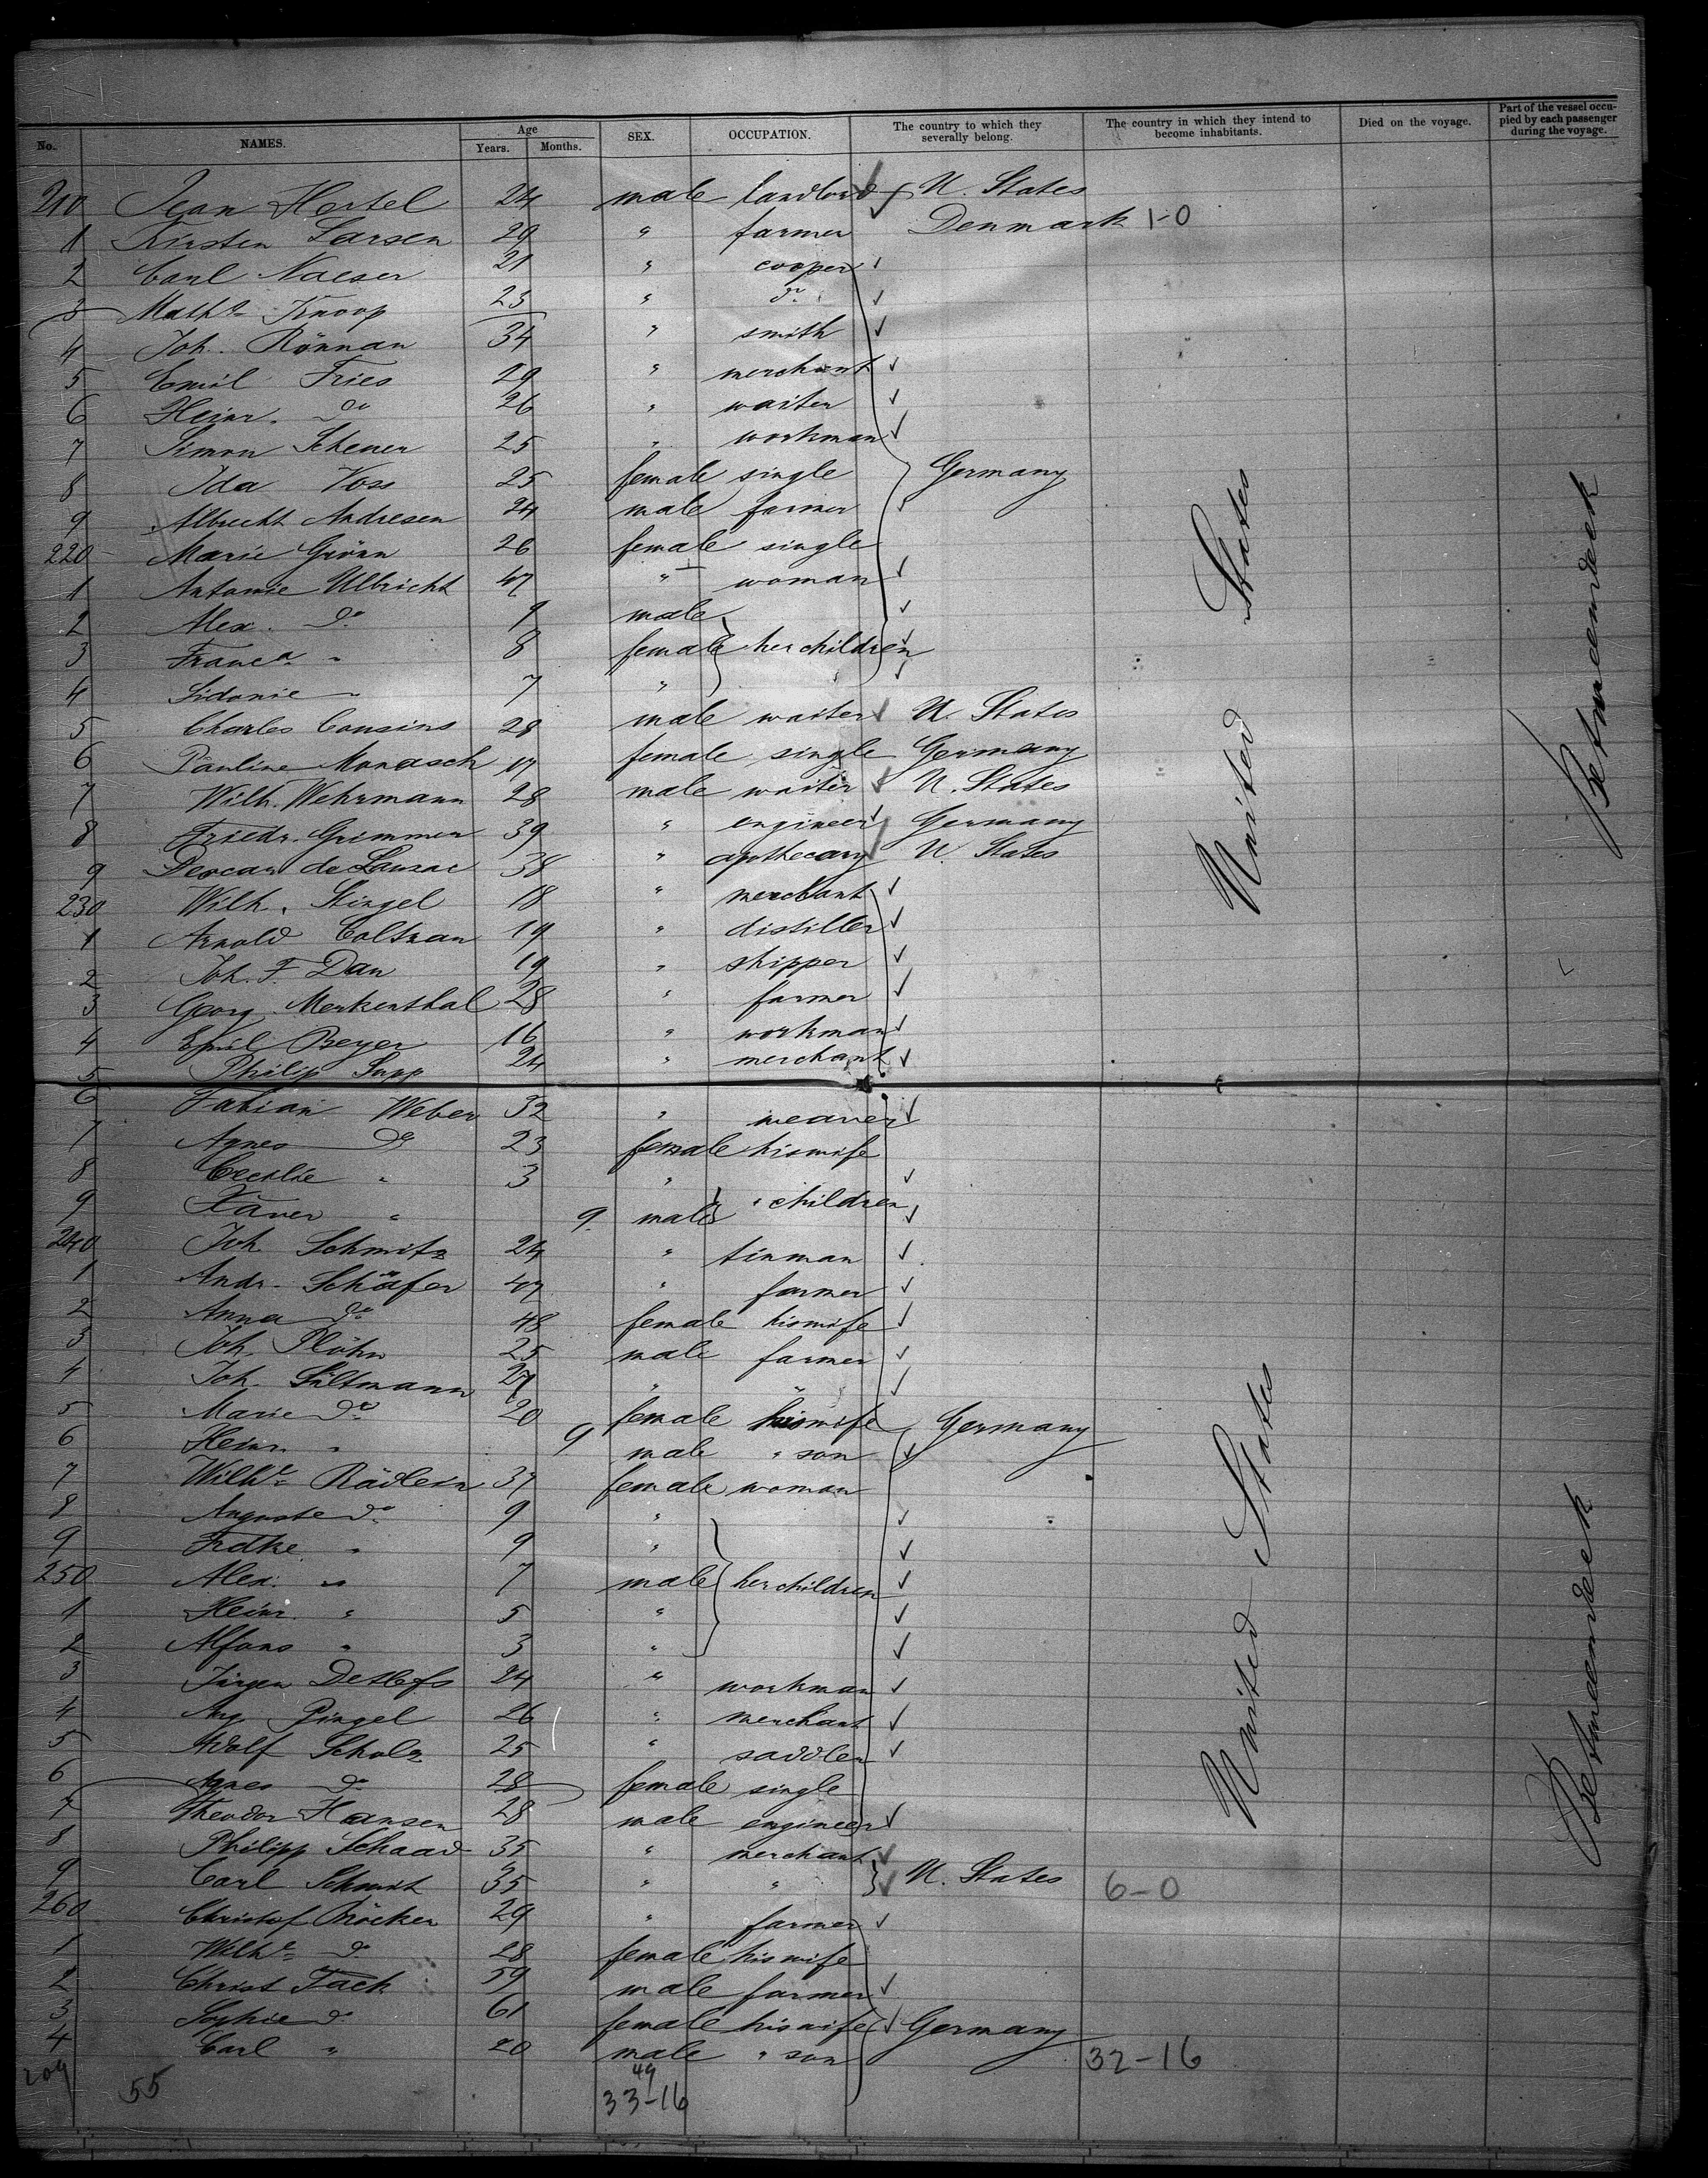 No. NAMES. Age Years. Months. SEX. OCCUPATION. The country to which they severally belong. The country in which they intend to become inhabitants. Died on the voyage. Part of the vessel occupied by each passenger during the voyage.
210 Jean Hertel 24 male landlord U. States
1 Kirsten Larsen 29 " farmer Denmark 1-0
2 Carl Naeser 21 " cooper
3 Mathe Knoop 23 " do
4 Joh. Rönnan 34 " smith
5 Emil Fries 29 " merchant
6 Heinr. do 26 " waiter
7 Simon Scheuer 25 " workman
8 Ida Voss 25 female single Germany
9 Albrecht Andresen 24 male farmer
220 Marie Grönn 26 female single
1 Antonie Ulbricht 47 " woman
2 Alex. do 9 male
3 Franca " 8 female her children
4 Sidonie " 7 "
5 Charles Cousins 28 male waiter U. States
6 Pauline Monasch 17 female single Germany
7 Wilh. Wehrmann 28 male waiter U. States
8 Friedr. Grimmer 39 " engineer Germany
9 de Lauzac 38 " apothecary U. States
230 Wilh. Stingel 18 " merchant
1 Arnold Coltzau 19 " distiller
2 Joh. F. Dau 19 " shipper
3 Georg Merkenthal 28 " farmer
4 Emil Beyer 16 " workman
5 Philip Supp 24 " merchant
6 Fabian Weber 32 " weaver
7 Agnes do 23 female his wife
8 Cecilie " 3 "
9 Xaver " 9 male " children
240 Joh. Schmitz 24 " tinman
1 Andr. Schäfer 47 " farmer
2 Anna do 48 female his wife
3 Joh. Plöhn 25 male farmer
4 Joh. Sültmann 27 " "
5 Marie do 20 female his wife Germany
6 Heinr. " 9 male " son
7 Wilhe Rädlein 37 female woman
8 Auguste do 9 "
9 Frdke " 9 "
250 Alex. " 7 male her children
1 Heinr. " 5 "
2 Alfons " 3 "
3 Jürgen Detlefs 24 " workman
4 Aug. Pingel 26 " merchant
5 Adolf Scholz 25 " saddler
6 Agnes do 28 female single
7 Theodor Hansen 28 male engineer
8 Philipp Schaad 35 " merchant
9 Carl Schmit 35 " " U. States 6-0
260 Christof Bröcker 29 " farmer
1 Wilhe do 28 female his wife
2 Christ Tack 59 male farmer
3 Sophie do 61 female his wife Germany
4 Carl " 20 male " son 32-16
209 55 49
33-16
United States
Betweendeck
United States
Betweendeck